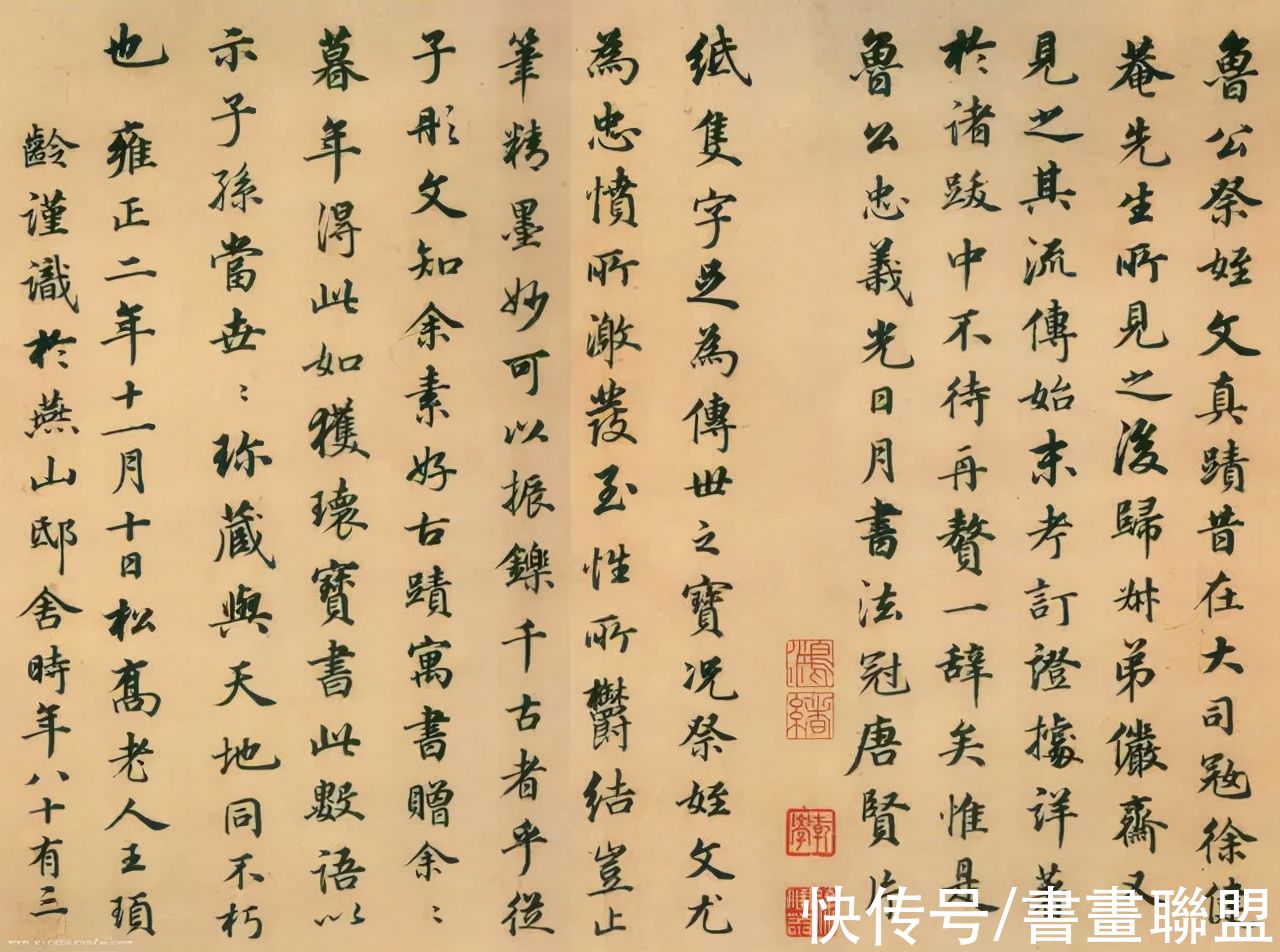 魯公祭姪文真蹟昔在大司寇徐健
菴先生所見之後歸叔弟儼齋又
見之其流傳始末考訂證據詳著
於諸跋中不待再贅一辭矣惟是
魯公忠義光日月書法冠唐賢片
紙隻字足為傳世之寶況祭姪文尤
為忠憤所激發至性所鬱結豈止
筆精墨妙可以振鑠千古者乎從
子彤文知余素好古蹟寓書贈余〻
暮年得此如獲瓌寶書此數語以
示子孫當世〻珍藏與天地同不朽
也雍正二年十一月十日松喬老人王頊
齡謹識於燕山邸舍時年八十有三
鴻緒
快传号/書畫聯盟